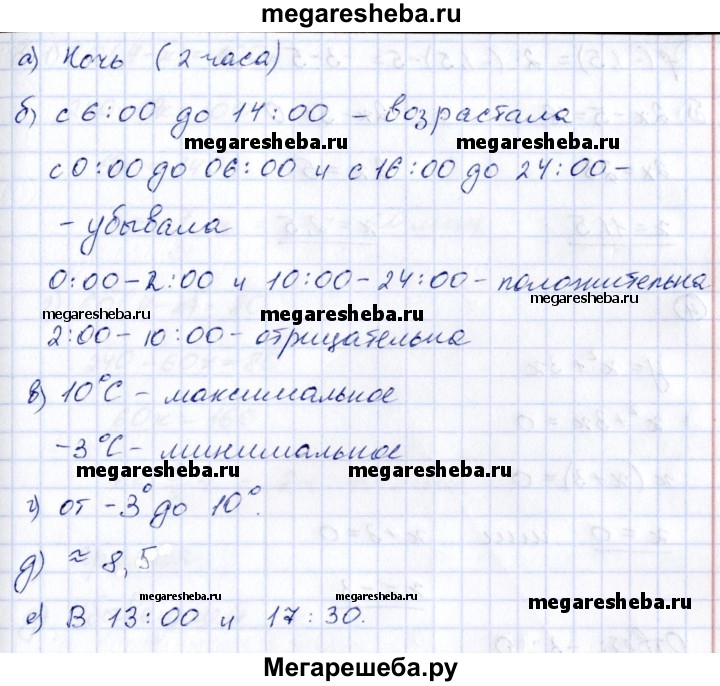 megaresheba.ru
а) Ночь (2 часа)
б) с 6:00 до 14:00 – возрастала
megaresheba.ru megaresheba.ru
с 0:00 до 06:00 и с 16:00 до 24:00 –
– убывала
0:00–2:00 и 10:00–24:00 – положительна
megaresheba.ru megaresheba.ru megaresheba.ru
2:00–10:00 – отрицательна
в) 10°С – максимальное
–3°С – минимальное
megaresheba.ru megaresheba.ru
г) от –3° до 10°.
д) ≈ 8,5
megaresheba.ru megaresheba.ru
е) В 13:00 и 17:30.
Мегарешеба.ру